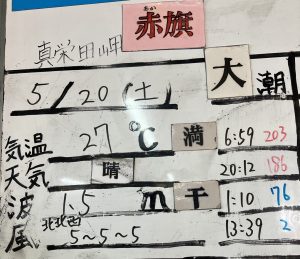 あか
赤旗
真栄田岬
大潮
5/20(土)
気温 27℃ 満 6:59 203
天気 晴 20:12 186
波 1.5 m 干 1:10 76
風 北北西 5~5~5 13:39 2